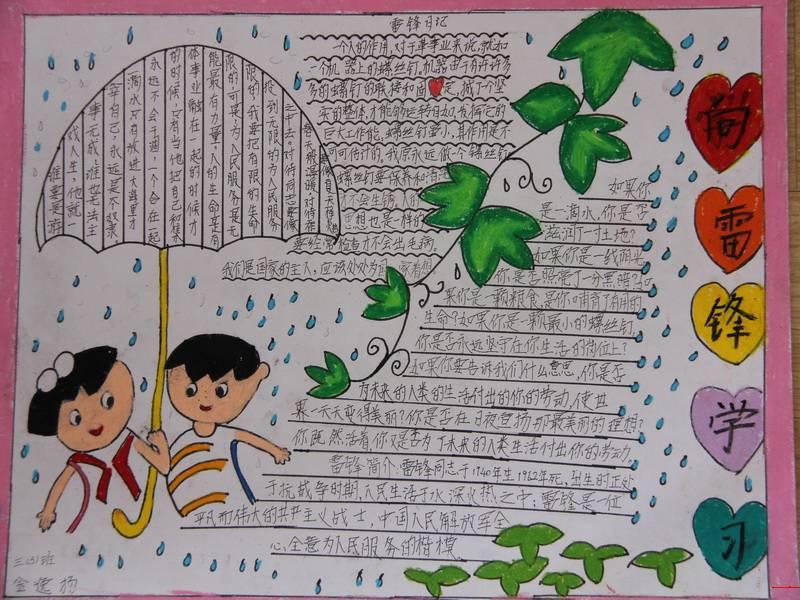 雷锋日记
一个人的作用，对于革命事业来说，就如
一个机器上的螺丝钉。机器由于有许许多
多的螺丝钉的联接和固定，
实的整体，才能够运转自如，发挥它的
巨大工作能。螺丝钉虽小，其作用是不
可估计的，我愿永远做一个螺丝钉
螺丝钉要保养和清洗
不会生锈。人的
思想也是一样的
要经常检查才不会出毛病。
我们是国家的主人，应该处处为国家着想
谁要是游
戏人生，他就一
事无成，谁
自己，永远是个奴隶。
滴水只有放进大海里才
永远不会干涸，一个人只有
的时候，只有当他把自己和集
体事业融合在一起的时候才
能最有力量。人的生命是有
限的，可是，为人民服务是无
限的，我要把有限的生命，
投到无限的为人民服务
之中去。对待同志要像
春天般温暖，对待
如果你
是一滴水，你是否
滋润了一寸土地？
如果你是一线阳光，
你是否照亮了一分黑暗？如
果你是一颗粮食，是你哺育了有用的
生命？如果你是一颗最小的螺丝钉，
你是否永远坚守在你生活的岗位上？
如果你要告诉我们什么思想，你是否
为未来的人类的生活付出的你的劳动，使世
界一天天变得美丽？你是否在日夜宣扬那最美丽的理想？
你既然活着，你又是否为了未来的人类生活付出你的劳动，
雷锋简介：雷锋同志于1940年生1962年死，出生的正处
于抗战争时期，人民生活于水深火热之中，雷锋是一位
平凡而伟大的共产主义战士，中国人民解放军全
心全意为人民服务的楷模。
向
雷
锋
学
习
三(3)班